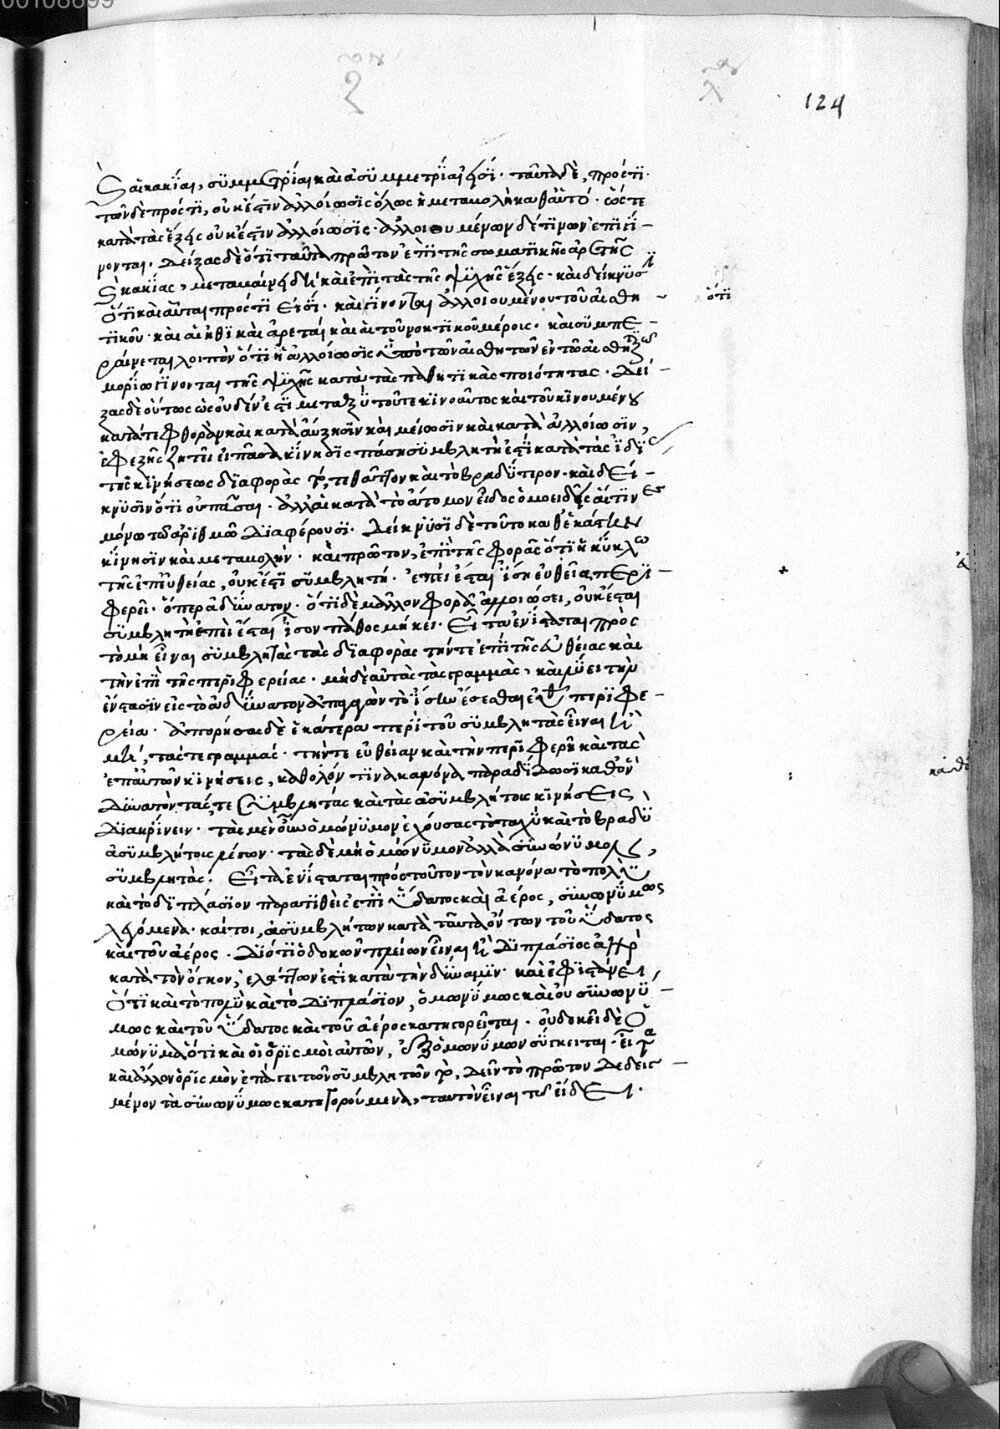 00108699
124
καὶ κακίαι, συμμετρίαι καὶ ἀσυμμετρίαι εἰσί. ταῦτα δὲ, πρός τι.
τῶν δὲ πρός τι, οὐκ ἔστιν ἀλλοίωσις ὅλως ἢ μεταβολὴ καθ' αὑτό. ὥστε
κατὰ τὰς ἕξεις οὐκ ἔστιν ἀλλοίωσις. ἀλλοιουμένων δέ τινων ἐπιγί-
νονται. δείξας δὲ ὅτι ταῦτα πρῶτον ἐπὶ τῆς σωματικῆς ἀρετῆς
καὶ κακίας, μεταβαίνει δὴ καὶ ἐπὶ τὰς τῆς ψυχῆς ἕξεις. καὶ δείκνυσι
ὅτι καὶ αὗται πρός τι εἰσί. καὶ γίνονται ἀλλοιουμένου τοῦ αἰσθη-
ὅτι
τικοῦ. καὶ αἱ ἠθικαὶ ἀρεταὶ καὶ αἱ τοῦ νοητικοῦ μέρους. καὶ συμπε-
ραίνεται λοιπὸν ὅτι ἡ ἀλλοίωσις ὑπὸ τῶν αἰσθητῶν ἐν τῷ αἰσθητικῷ
μορίῳ γίνονται τῆς ψυχῆς κατὰ τὰς παθητικὰς ποιότητας. δεί-
ξας δὲ οὕτως ὡς οὐδέν ἐστι μεταξὺ τοῦ τε κινοῦντος καὶ τοῦ κινουμένου
κατά τε φθορὰν καὶ κατὰ αὔξησιν καὶ μείωσιν καὶ κατὰ ἀλλοίωσιν,
ἐφεξῆς ζητεῖ εἰ πᾶσα κίνησις πάσῃ συμβλητή ἐστι κατὰ τὰς ἰδίας
τῆς κινήσεως διαφορὰς τό, τε θᾶττον καὶ τὸ βραδύτερον. καὶ δεί-
κνυσιν ὅτι οὐ πᾶσαι. ἀλλ' αἱ κατὰ τὸ ἄτομον εἶδος ὁμοειδεῖς αἵτινες
μόνῳ τῷ ἀριθμῷ διαφέρουσι. δείκνυσι δὲ τοῦτο καθ' ἑκάστην
κίνησιν καὶ μεταβολήν. καὶ πρῶτον, ἐπὶ τῆς φορᾶς ὅτι ἡ κύκλῳ
τῆς ἐπ' εὐθείας, οὐκ ἔστι συμβλητή. ἐπεὶ ἔσται ἴση εὐθεῖα περι-
φερεῖ. ὅπερ ἀδύνατον. ὅτι δὲ μᾶλλον φορὰ ἀλλοιώσει, οὐκ ἔσται
συμβλητὴ ἐπεὶ ἔσται ἴσον πάθος μήκει. εἶτα ἐνίσταται πρὸς
τὸ μὴ εἶναι συμβλητὰς τὰς διαφορὰς τήν τε ἐπὶ τῆς εὐθείας καὶ
τὴν ἐπὶ τῆς περιφερείας. μηδὲ αὐτὰς τὰς γραμμὰς, καὶ λύει τὴν
ἔνστασιν εἰς τὸ ἀδύνατον ἀπαγαγὼν τὸ ἴσην ἔσεσθαι εὐθεῖαν περιφε-
ρείᾳ. ἀπορήσας δὲ ἑκάτερα περὶ τοῦ συμβλητὰς εἶναι ἢ
μὴ, τάς τε γραμμάς. τήν τε εὐθεῖαν καὶ τὴν περιφερῆ καὶ τὰς
ἐπ' αὐτῶν κινήσεις, καθόλου τινὰ κανόνα παραδίδωσι καθ' ὃν
καθ'
δυνατὸν τάς τε συμβλητὰς καὶ τὰς ἀσυμβλήτους κινήσεις
διακρίνειν. τὰς μὲν οὖν ὁμώνυμον ἐχούσας τὸ ταχὺ καὶ τὸ βραδὺ
ἀσυμβλήτους λέγων. τὰς δὲ μὴ ὁμώνυμον ἀλλὰ συνώνυμον,
συμβλητάς. εἶτα ἐνίσταται πρὸς τοῦτον τὸν κανόνα τὸ πολὺ
καὶ τὸ διπλάσιον παρατιθεὶς ἐπὶ ὕδατος καὶ ἀέρος, συνωνύμως
λεγόμενα. καίτοι, ἀσυμβλήτων κατὰ ταῦτα ὄντων τοῦ ὕδατος
καὶ τοῦ ἀέρος. διότι ὁ δοκῶν πλείων εἶναι ἢ διπλάσιος ἀὴρ
κατὰ τὸν ὄγκον, ἐλάττων ἐστὶ κατὰ τὴν δύναμιν. καὶ ἐφιστάνει,
ὅτι καὶ τὸ πολὺ καὶ τὸ διπλάσιον, ὁμωνύμως καὶ οὐ συνωνύ-
μως καὶ τοῦ ὕδατος καὶ τοῦ ἀέρος κατηγορεῖται. οὐ δοκεῖ δὲ ὁ-
μώνυμα ὅτι καὶ οἱ ὁρισμοὶ αὐτῶν, ἐξ ὁμωνύμων σύγκειται. εἶτα
καὶ ἄλλον ὁρισμὸν ἐπάγει τῶν συμβλητῶν, δεῖν τὸ πρῶτον δεδεγ-
μένον τὰ συνωνύμως κατηγορούμενα, ταυτὸν εἶναι τῷ εἴδει.